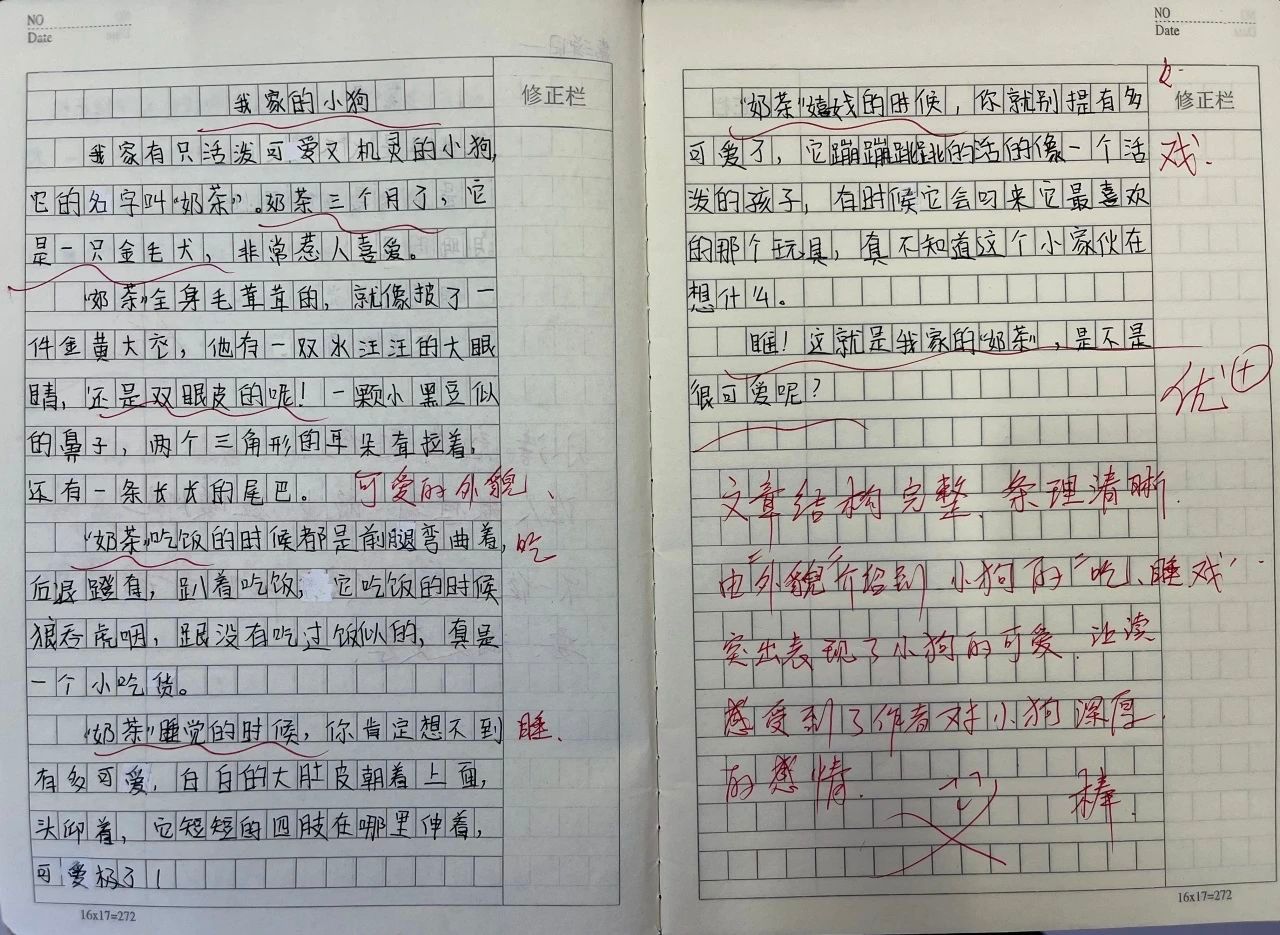 NO
Date
修正栏
我家的小狗
我家有只活泼可爱又机灵的小狗,
它的名字叫“奶茶”。奶茶三个月了,它
是一只金毛犬,非常惹人喜爱。
“奶茶”全身毛茸茸的,就像披了一
件金黄大衣,他有一双水汪汪的大眼
睛,还是双眼皮的呢!一颗小黑豆似
的鼻子,两个三角形的耳朵耷拉着,
还有一条长长的尾巴。 可爱的外貌、
“奶茶”吃饭的时候都是前腿弯曲着, 吃
后退蹬直,趴着吃饭,它吃饭的时候
狼吞虎咽,跟没有吃过饭似的,真是
一个小吃货。
“奶茶”睡觉的时候,你肯定想不到 睡、
有多可爱,白白的大肚皮朝着上面,
头仰着,它短短的四肢在哪里伸着,
可爱极了!
16x17=272
NO
Date
修正栏
“奶茶”嬉戏的时候,你就别提有多
可爱了,它蹦蹦跳跳的活的像一个活 戏.
泼的孩子,有时候它会叼来它最喜欢
的那个玩具,真不知道这个小家伙在
想什么。
瞧!这就是我家的“奶茶”,是不是
很可爱呢? 优+
文章结构完整、条理清晰.
由“外貌”介绍到小狗的“吃、睡、戏”
突出表现了小狗的可爱.让读
感受到了作者对小狗深厚
的感情. 棒.
16x17=272